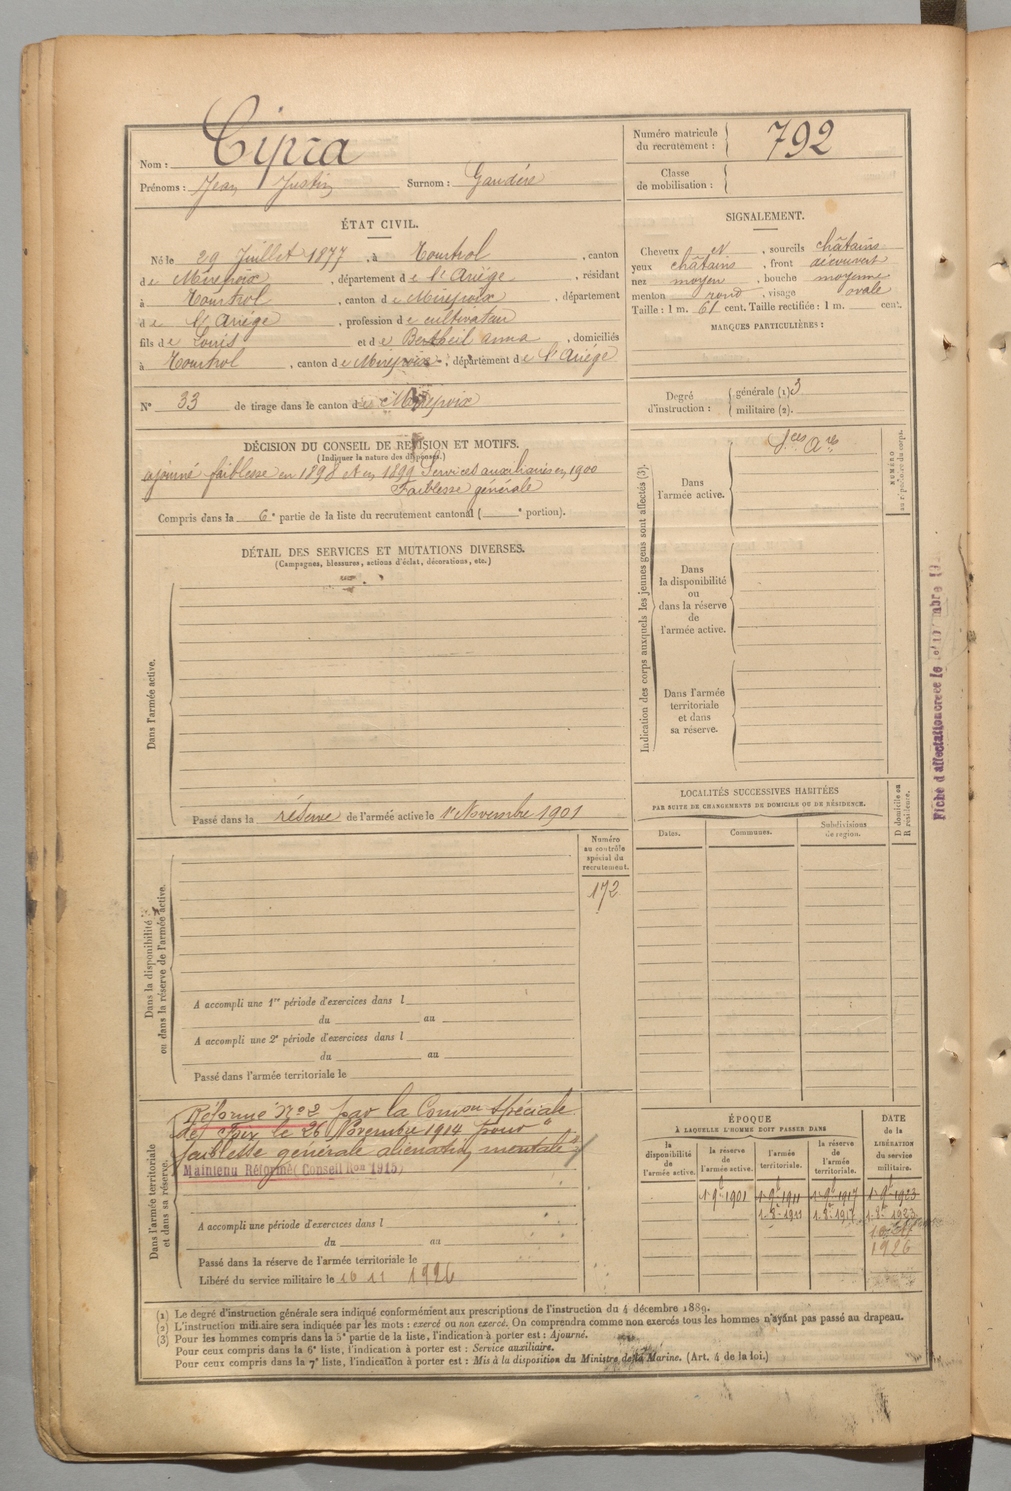 Nom : Cipra
Prénoms : Jean Justin Surnom : Gaudéré
Numéro matricule du recrutement : 792
Classe de mobilisation :
ÉTAT CIVIL.
Né le 29 Juillet 1877, à Tourtrol, canton
de Mirepoix, département de l'Ariége, résidant
à Tourtrol, canton de Mirepoix, département
de l'Ariége, profession de cultivateur
fils de Louis et de Bertheil anna, domiciliés
à Tourtrol, canton de Mirepoix, département de l'Ariége
N° 33 de tirage dans le canton de Mirepoix
SIGNALEMENT.
Cheveux ct, sourcils châtains
yeux châtains, front découvert
nez moyen, bouche moyenne
menton rond, visage ovale
Taille : 1 m. 61 cent. Taille rectifiée : 1 m. cent.
MARQUES PARTICULIÈRES :
Degré d'instruction : générale (1) 3
militaire (2).
DÉCISION DU CONSEIL DE REVISION ET MOTIFS.
(Indiquer la nature des dispenses.)
ajourné faiblesse en 1898 et en 1899 Services auxiliaires en 1900
Faiblesse générale
Compris dans la 6e partie de la liste du recrutement cantonal ( e portion).
DÉTAIL DES SERVICES ET MUTATIONS DIVERSES.
(Campagnes, blessures, actions d'éclat, décorations, etc.)
Dans l'armée active.
Passé dans la réserve de l'armée active le 1er Novembre 1901
Indication des corps auxquels les jeunes gens sont affectés (3).
Dans l'armée active.
Sces Ares
NUMÉRO
au répertoire du corps.
Dans la disponibilité ou dans la réserve de l'armée active.
Dans l'armée territoriale et dans sa réserve.
Fiche d'affectation créée le
LOCALITÉS SUCCESSIVES HABITÉES
PAR SUITE DE CHANGEMENTS DE DOMICILE OU DE RÉSIDENCE.
D domicile ou R résidence.
Dates. Communes. Subdivisions de région.
Numéro au contrôle spécial du recrutement.
172
Dans la disponibilité
ou dans la réserve de l'armée active.
A accompli une 1re période d'exercices dans l
du au
A accompli une 2e période d'exercices dans l
du au
Passé dans l'armée territoriale le
Dans l'armée territoriale
et dans sa réserve.
Réformé N° 2 par la Comon spéciale
de Foix le 26 Novembre 1914 pour "
faiblesse générale aliénation mentale"
Maintenu Réformé (Conseil Ron 1915)
A accompli une période d'exercices dans l
du au
Passé dans la réserve de l'armée territoriale le
Libéré du service militaire le 10 11 1926
ÉPOQUE
À LAQUELLE L'HOMME DOIT PASSER DANS
DATE de la LIBÉRATION du service militaire.
la disponibilité de l'armée active. la réserve de l'armée active. l'armée territoriale. la réserve de l'armée territoriale.
1 9bre 1901 1 9bre 1911 1 9bre 1917 1 9bre 1923
1 8bre 1911 1 8bre 1917 1 8bre 1923
1926
(1) Le degré d'instruction générale sera indiqué conformément aux prescriptions de l'instruction du 4 décembre 1889.
(2) L'instruction militaire sera indiquée par les mots : exercé ou non exercé. On comprendra comme non exercés tous les hommes n'ayant pas passé au drapeau.
(3) Pour les hommes compris dans la 5e partie de la liste, l'indication à porter est : Ajourné.
Pour ceux compris dans la 6e liste, l'indication à porter est : Service auxiliaire.
Pour ceux compris dans la 7e liste, l'indication à porter est : Mis à la disposition du Ministre de la Marine. (Art. 4 de la loi.)